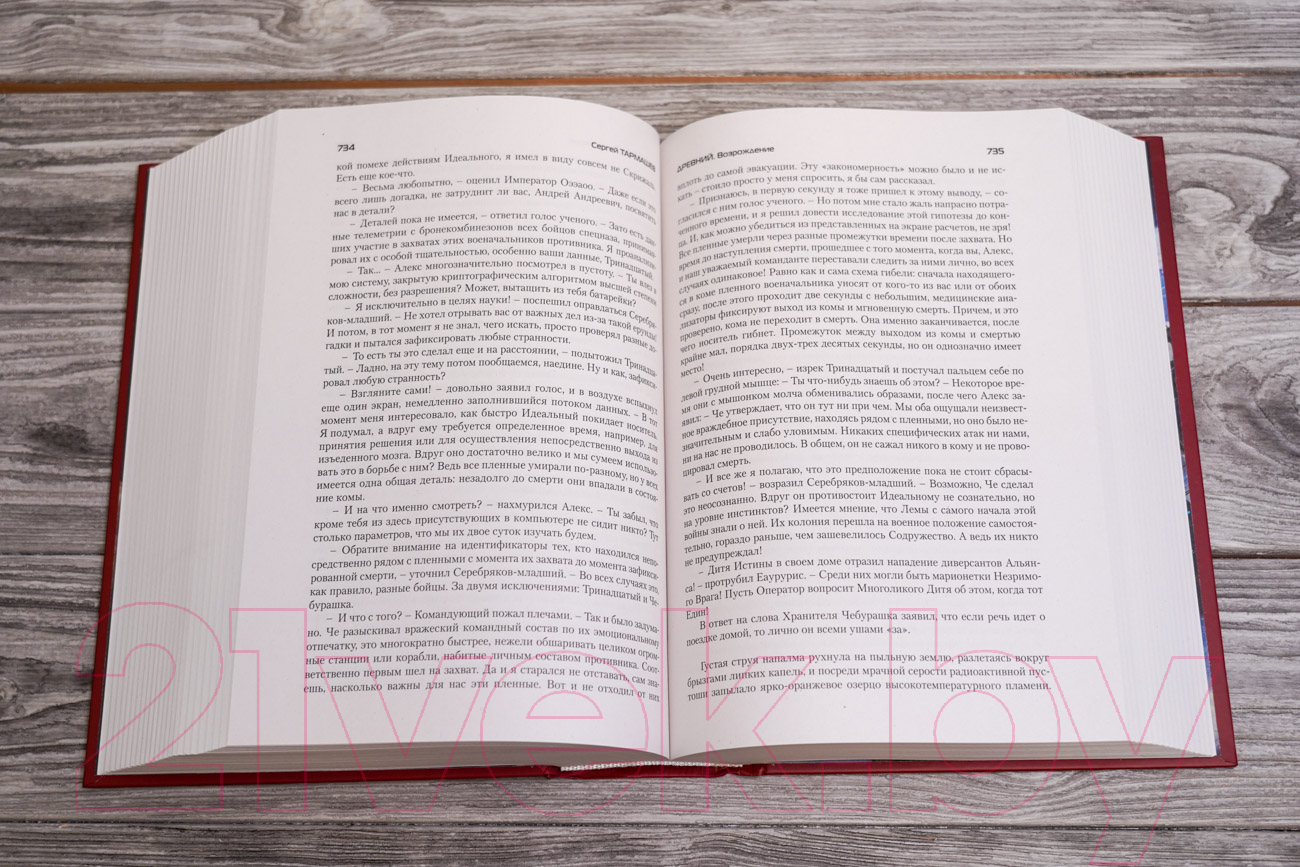 734
Сергей ТАРМАШЕВ
кой помехе действиям Идеального, я имел в виду совсем не Скрижаль.
Есть еще кое-что.
– Весьма любопытно, – оценил Император Оээаоо. – Даже если это
всего лишь догадка, не затруднит ли вас, Андрей Андреевич, посвятить
нас в детали?
– Деталей пока не имеется, – ответил голос ученого. – Зато есть дан-
ные телеметрии с бронекомбинезонов всех бойцов спецназа, принимав-
ших участие в захватах этих военачальников противника. Я проанализи-
ровал их с особой тщательностью, особенно ваши данные, Тринадцатый.
– Так... – Алекс многозначительно посмотрел в пустоту. – Ты влез в
мою систему, закрытую криптографическим алгоритмом высшей степени
сложности, без разрешения? Может, вытащить из тебя батарейки?
– Я исключительно в целях науки! – поспешил оправдаться Серебря-
ков-младший. – Не хотел отрывать вас от важных дел из-за такой ерунды!
И потом, в тот момент я не знал, чего искать, просто проверял разные до-
гадки и пытался зафиксировать любые странности.
– То есть ты это сделал еще и на расстоянии, – подытожил Тринадца-
тый. – Ладно, на эту тему потом пообщаемся, наедине. Ну и как, зафикси-
ровал любую странность?
– Взгляните сами! – довольно заявил голос, и в воздухе вспыхнул
еще один экран, немедленно заполнившийся потоком данных. – В тот
момент меня интересовало, как быстро Идеальный покидает носитель.
Я подумал, а вдруг ему требуется определенное время, например, для
принятия решения или для осуществления непосредственно выхода из
изъеденного мозга. Вдруг оно достаточно велико и мы сумеем использо-
вать это в борьбе с ним? Ведь все пленные умирали по-разному, но у всех
имеется одна общая деталь: незадолго до смерти они впадали в состоя-
ние комы.
– И на что именно смотреть? – нахмурился Алекс. – Ты забыл, что
кроме тебя из здесь присутствующих в компьютере не сидит никто? Тут
столько параметров, что мы их двое суток изучать будем.
– Обратите внимание на идентификаторы тех, кто находился непо-
средственно рядом с пленными с момента их захвата до момента зафикси-
рованной смерти, – уточнил Серебряков-младший. – Во всех случаях это,
как правило, разные бойцы. За двумя исключениями: Тринадцатый и Че-
бурашка.
– И что с того? – Командующий пожал плечами. – Так и было задума-
но. Че разыскивал вражеский командный состав по их эмоциональному
отпечатку, это многократно быстрее, нежели обшаривать целиком огром-
ные станции или корабли, набитые личным составом противника. Соот-
ветственно первым шел на захват. Да и я старался не отставать, сам зна-
ешь, насколько важны для нас эти пленные. Вот и не отходил от них
ДРЕВНИЙ. Возрождение
735
вплоть до самой эвакуации. Эту «закономерность» можно было и не ис-
кать – стоило просто у меня спросить, я бы сам рассказал.
– Признаюсь, в первую секунду я тоже пришел к этому выводу, – со-
гласился с ним голос ученого. – Но потом мне стало жаль напрасно потра-
ченного времени, и я решил довести исследование этой гипотезы до кон-
ца. И, как можно убедиться из представленных на экране расчетов, не зря!
Все пленные умерли через разные промежутки времени после захвата. Но
время до наступления смерти, прошедшее с того момента, когда вы, Алекс,
и наш уважаемый команданте переставали следить за ними лично, во всех
случаях одинаковое! Равно как и сама схема гибели: сначала находящего-
ся в коме пленного военачальника уносят от кого-то из вас или от обоих
сразу, после этого проходит две секунды с небольшим, медицинские ана-
лизаторы фиксируют выход из комы и мгновенную смерть. Причем, и это
проверено, кома не переходит в смерть. Она именно заканчивается, после
чего носитель гибнет. Промежуток между выходом из комы и смертью
крайне мал, порядка двух-трех десятых секунды, но он однозначно имеет
место!
– Очень интересно, – изрек Тринадцатый и постучал пальцем себе по
левой грудной мышце: – Ты что-нибудь знаешь об этом? – Некоторое вре-
мя они с мышонком молча обменивались образами, после чего Алекс за-
явил: – Че утверждает, что он тут ни при чем. Мы оба ощущали неизвест-
ное враждебное присутствие, находясь рядом с пленными, но оно было не-
значительным и слабо уловимым. Никаких специфических атак ни нами,
ни на нас не проводилось. В общем, он не сажал никого в кому и не прово-
цировал смерть.
– И все же я полагаю, что это предположение пока не стоит сбрасы-
вать со счетов! – возразил Серебряков-младший. – Возможно, Че сделал
это неосознанно. Вдруг он противостоит Идеальному не сознательно, но
на уровне инстинктов? Имеется мнение, что Лемы с самого начала этой
войны знали о ней. Их колония перешла на военное положение самостоя-
тельно, гораздо раньше, чем зашевелилось Содружество. А ведь их никто
не предупреждал!
– Дитя Истины в своем доме отразил нападение диверсантов Альян-
са! – протрубил Еаурурис. – Среди них могли быть марионетки Незримо-
го Врага! Пусть Оператор вопросит Многоликого Дитя об этом, когда тот
Един!
В ответ на слова Хранителя Чебурашка заявил, что если речь идет о
поездке домой, то лично он всеми ушами «за».
Густая струя напалма рухнула на пыльную землю, разлетаясь вокруг
брызгами липких капель, и посреди мрачной серости радиоактивной пус-
тоши запылало ярко-оранжевое озерцо высокотемпературного пламени.
21vek.by